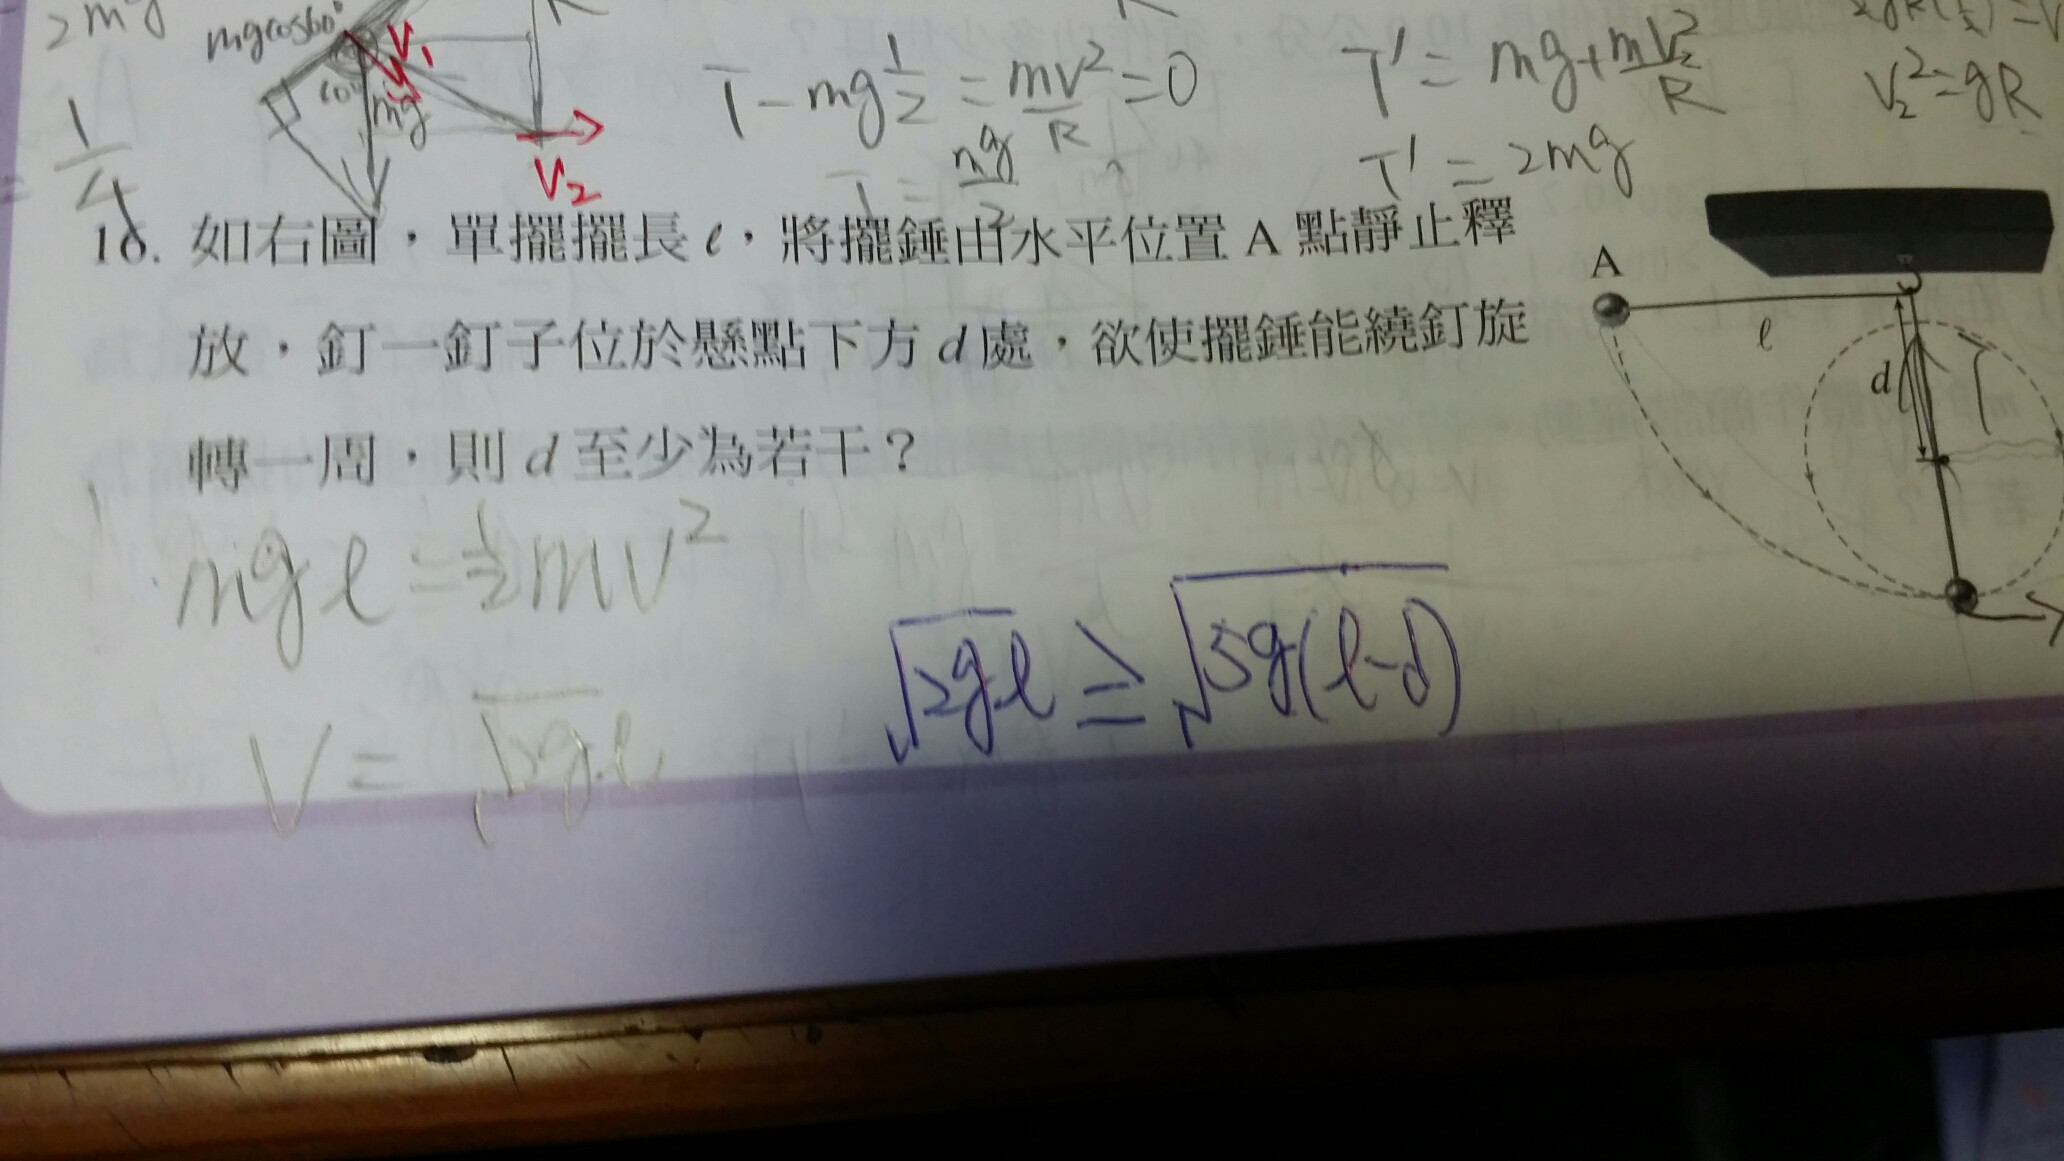 2mg
mgcos60°
V₁
mg
V₂
1/4
T - mg 1/2 = mv²/R = 0
T' = mg + mv₂²/R
T' = 2mg
V₂² = gR
16. 如右圖，單擺擺長 ℓ，將擺錘由水平位置 A 點靜止釋
放，釘一釘子位於懸點下方 d 處，欲使擺錘能繞釘旋
轉一周，則 d 至少為若干？
A
ℓ
d
mgℓ = 1/2 mv²
V = √2gℓ
√2gℓ ≥ √5g(ℓ-d)